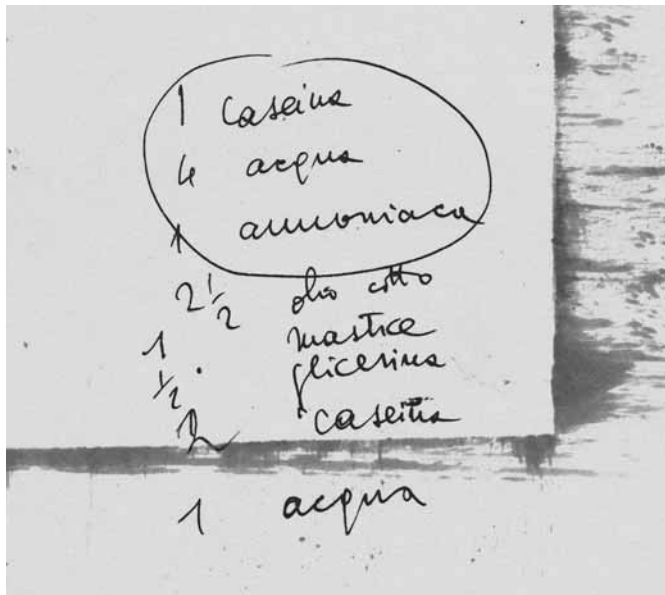 1 caseina
4 acqua
1 ammoniaca
2 1/2 olio cotto
1 mastice
1/2 glicerina
caseina
1 acqua